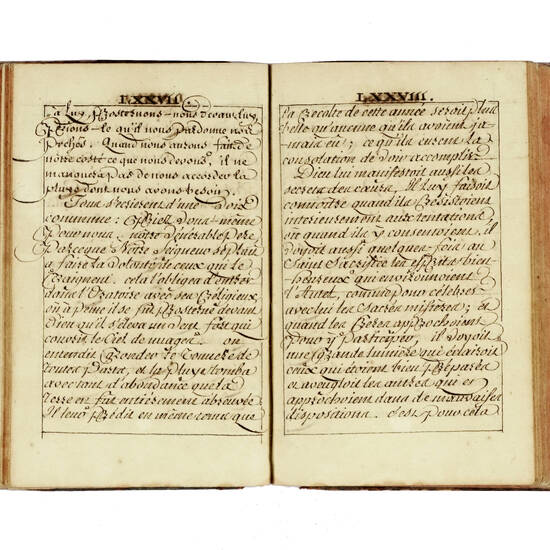 LXXVII
a luy, Prosternons-nous devant luy,
Prions-le qu'il nous pardonne nos
Pechés. Quand nous aurons fait de
nôtre costé ce que nous devons, il ne
manquera pas de nous accorder la
pluye dont nous avons besoin.
Tous s'escrierent d'une voix
commune: Priez vous-même
pour nous, nôtre Venerable Pere
Parceque Nôtre Seigneur se plait
a faire la volonté de ceux qui le
Craignent. cela l'obligea d'entrer
dans l'Oratoire avec ses Religieux,
ou a peine il se fut Prosterné devant
Dieu qu'il s'éleva un vent fort qui
couvrit le Ciel de nuages. on
entendit Gronder le Tonnere de
toutes Parts, et la pluye tomba
avec tant d'abondance que la
terre en fut entierement abreuvée
Il leur Prédit en même tems que
LXXVIII
la Recolte de cette année seroit plus
belle qu'aucune qu'ils avoient ja-
mais eu; ce qu'ils eurent la
consolation de voir accomplir.
Dieu lui manifestoit aussi les
secrets des cœurs, Il luy faisoit
connoître quand ils Resistoient
interieusement aux tentations,
ou quand ils y consentoient. il
voyoit aussi quelques-fois au
Saint Sacrifice les esprits bien-
heureux qui environnoient
l'Autel, comme pour célébrer
avec lui les Sacrés misteres; et
quand les Freres approchoient
pour y Participer, il voyoit
une grande lumiere qui éclairoit
ceux qui étoient bien Préparés
et aveugloit les autres qui s'en
approchoient dans de mauvaises
dispositions. c'est pour cela